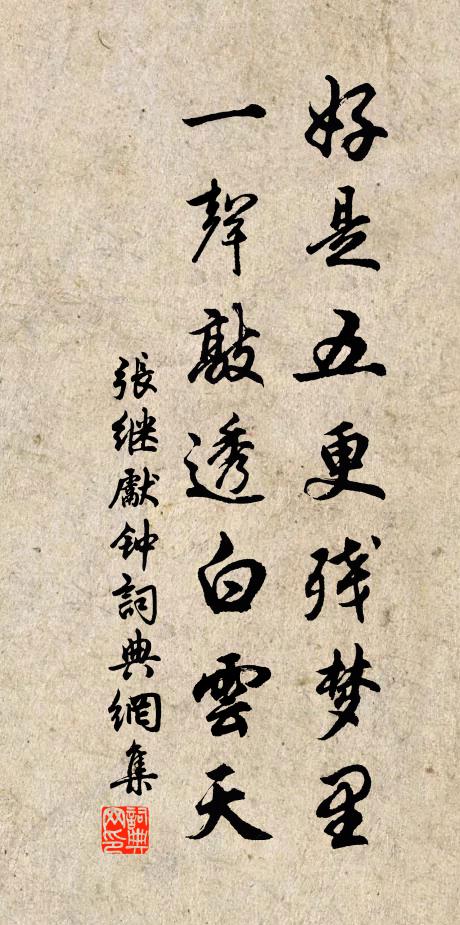 好是五更残梦里
一聲敲透白雲天
張继獻钟詞典網集
詞典网印